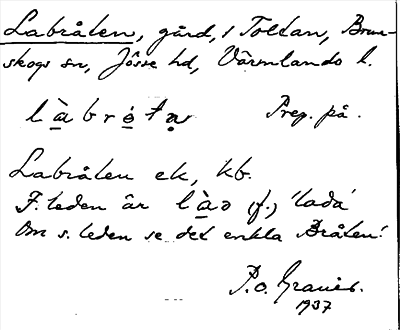 Labråten, gård, i Toltan, Brun-
skogs sn, Jösse hd, Värmlands l.
Prep. på.
Labråten ek, kb.
F. leden är (f.) 'lada'
Om s. leden se det enkla Bråten!
P.O. Granér.
1937